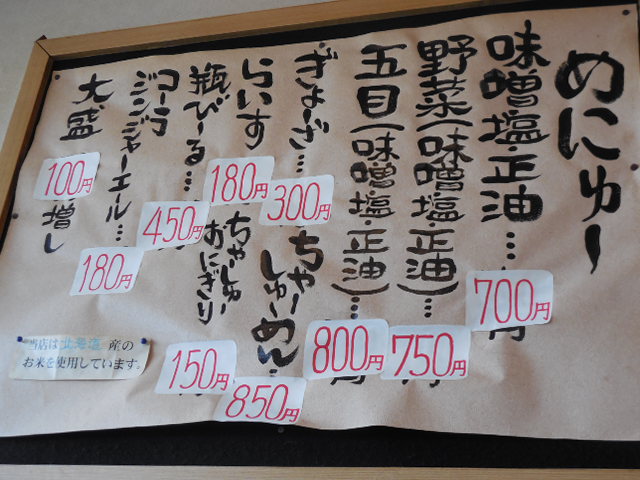 めにゅー
味噌・塩・正油……700円
野菜(味噌・塩・正油)…750円
五目(味噌・塩・正油)…800円
ぎょーざ…300円
ちゃーしゅーめん…850円
らいす180円
ちゃしゅーおにぎり150円
瓶びーる…450円
コーラ
ジンジャーエール…180円
大盛100円増し
当店は北海道産の
お米を使用しています。